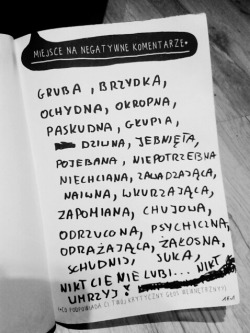 MIEJSCE NA NEGATYWNE KOMENTARZE
GRUBA, BRZYDKA,
OCHYDNA, OKROPNA,
PASKUDNA, GŁUPIA,
DZIWNA, JEBNIĘTA,
POJEBANA, NIEPOTRZEBNA
NIECHCIANA, ZAWADZAJĄCA,
NAIWNA, WKURZAJĄCA,
ZAPOMIANA, CHUJOWA,
ODRZUCONA, PSYCHICZNA,
ODRAŻAJĄCA, ŻAŁOSNA,
SCHUDNIJ, SUKA,
NIKT CIE NIE LUBI... NIKT
UMRZYJ!
(CO PODPOWIADA CI TWÓJ KRYTYCZNY GŁOS WEWNĘTRZNY?)